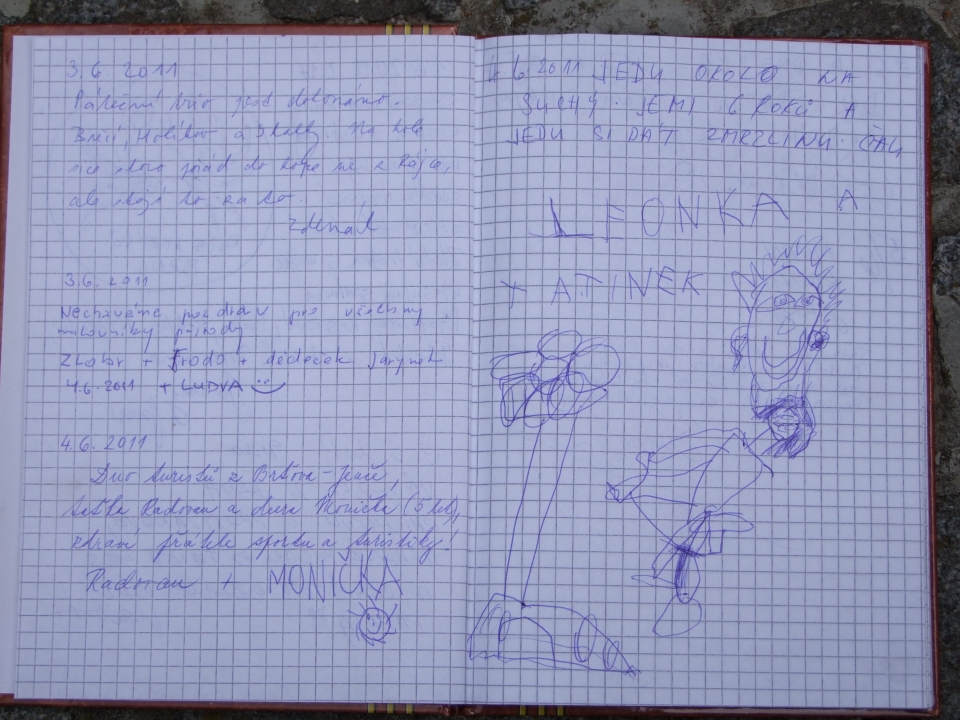 3.6 2011
Páteční trio jest dokonáno.
Brťí, Holíkov a Skalky. Na kole
sice skoro pořád do kopce než z Rájce,
ale stojí to za to.
Zdenál
3.6.2011
Necháváme pozdrav pro všechny
milovníky přírody
Zlobr + Frodo + dědeček Jarynek
4.6.2011 + LUDVA
4.6.2011
Duo turistů z Brťova-Jeneč,
taťka Radovan a dcera Monička (5 let),
zdraví přátele sportu a turistiky!
Radovan + MONIČKA
4 6.2011 JEDU OKOLO NA
SUCHÝ. JEMI 6 ROKŮ A
JEDU SI DÁT ZMRZLINU.
LEONKA A
TATINEK